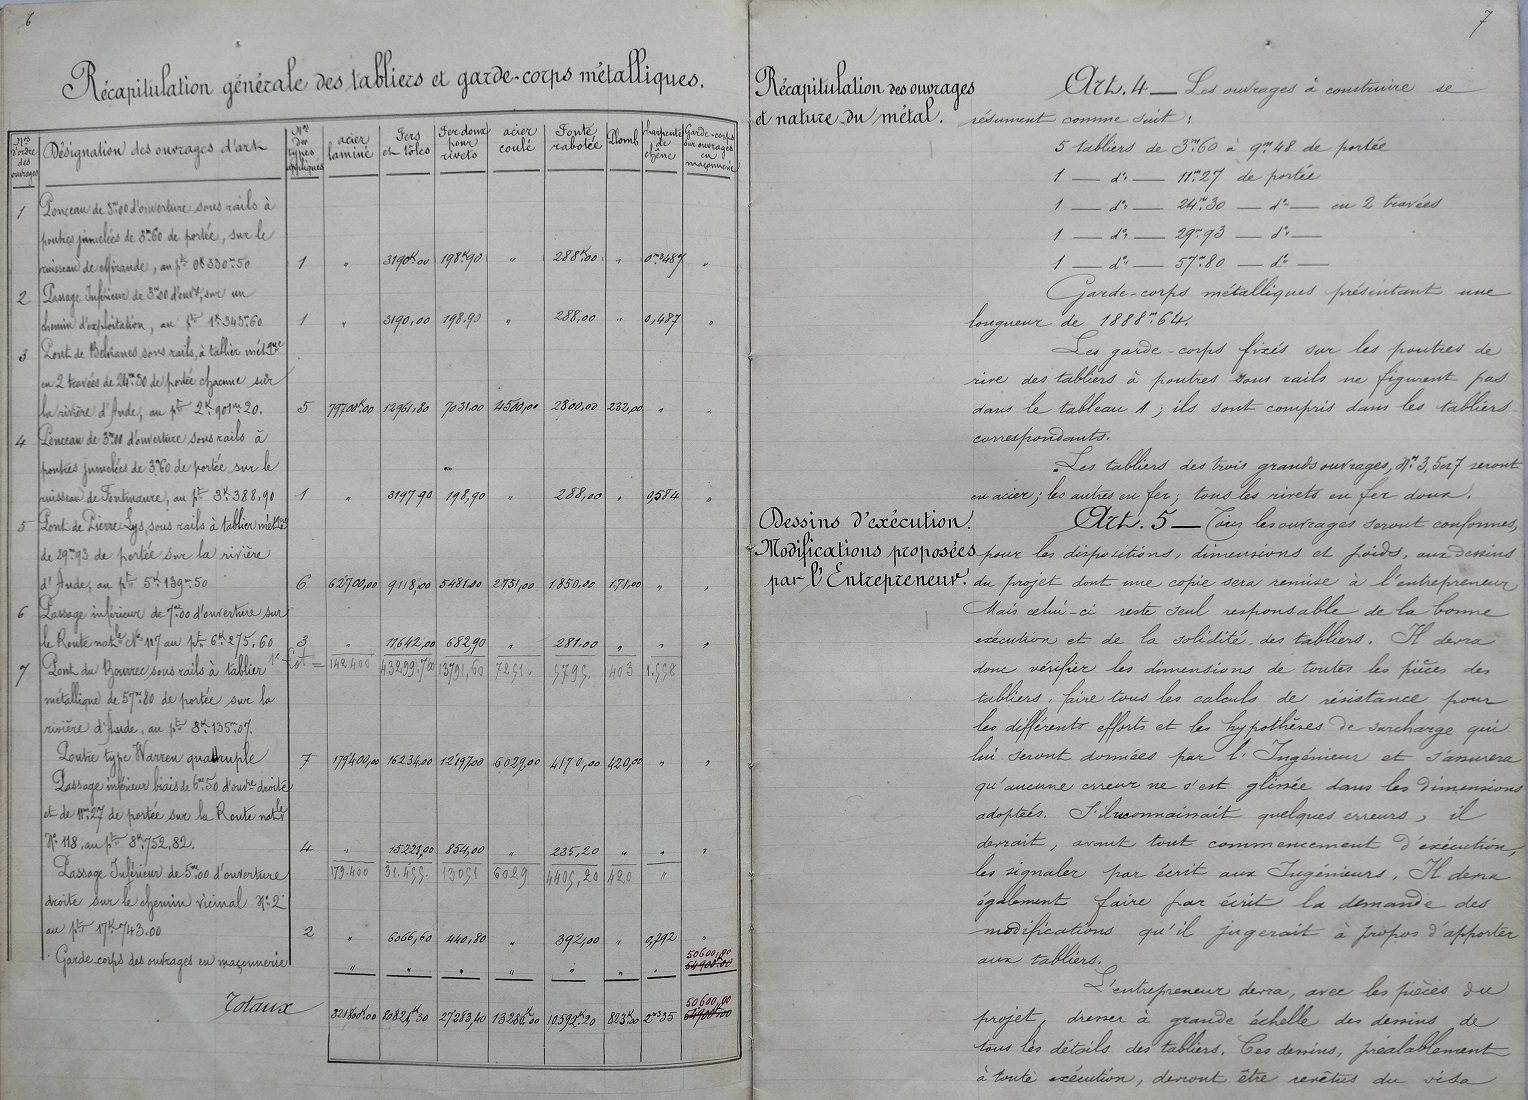 6
Récapitulation générale des tabliers et garde-corps métalliques.
Nos d'ordre des ouvrages | Désignation des ouvrages d'art | Nos des types appliqués | acier laminé | Fers et tôles | Fer doux pour rivets | acier coulé | Fonte rabotée | Plomb | charpente de chêne | Garde-corps sur ouvrages en maçonnerie
1 Ponceau de 3m00 d'ouverture sous rails à
poutres jumelées de 3m60 de portée, sur le
ruisseau de Mirande, au pt 0k330m50 1 " 3190k00 198k90 " 288k00 " 0m3487 "
2 Passage Inférieur de 3m00 d'ouvre, sur un
chemin d'exploitation, au pt 1k343m60 1 " 3190,00 198,90 " 288,00 " 0,487 "
3 Pont de Belvianes, sous rails, à tablier métque
en 2 travées de 24m30 de portée chacune sur
la rivière d'Aude, au pt 2k901m20. 5 79700k00 12961,80 7031,00 4500,00 2800,00 232,00 " "
4 Ponceau de 3m00 d'ouverture sous rails à
poutres jumelées de 3m60 de portée sur le
ruisseau de Fontmaure, au pt 3k388,90 1 " 3197,90 198,90 " 288,00 " 0,584 "
5 Pont de Pierre-Lys, sous rails à tablier métque
de 29m93 de portée sur la rivière
d'Aude, au pt 5k139m50 6 62700,00 9118,00 5481,00 2751,00 1850,00 171,00 " "
6 Passage inférieur de 7m00 d'ouverture sur
le Route natle No 117 au pt 6k275,60 3 " 11642,00 682,90 " 281,00 " " "
1er Lot = 142.400 43299.70 13791,60 7251. 5795. 403 1.558
7 Pont du Bourrec sous rails à tablier
métallique de 57m80 de portée sur la
rivière d'Aude, au pt 8k135m07.
Poutre type Warren quadruple 7 179400,00 16234,00 12197,00 6029,00 4170,00 420,00 " "
Passage inférieur biais de 6m50 d'ouvre droite
et de 11m27 de portée sur la Route natle
No 118, au pt 8k752,82. 4 " 15221,00 854,00 " 235,20 " " "
179.400 31.455. 13051 6029 4405,20 420 "
Passage Inférieur de 5m00 d'ouverture
droite sur le chemin vicinal No 2
au pt 17k743.00 2 " 6066,60 440,80 " 392,00 " 0,792 "
50600,00
Garde-corps des ouvrages en maçonnerie " " " " " " " 54900k00
50600,00
Totaux 321800k00 80821k30 27283,40 13280k00 10592k20 823k00 2m335 54900k00
7
Récapitulation des ouvrages
et nature du métal.
Art. 4 — Les ouvrages à construire se
résument comme suit :
5 tabliers de 3m60 à 9m48 de portée
1 — do — 11m27 de portée
1 — do — 24m30 — do — en 2 travées
1 — do — 29m93 — do —
1 — do — 57m80 — do —
Garde-corps métalliques présentant une
longueur de 1888m64.
Les garde-corps fixés sur les poutres de
rive des tabliers à poutres sous rails ne figurent pas
dans le tableau 1 ; ils sont compris dans les tabliers
correspondants.
Les tabliers des trois grands ouvrages, Nos 3, 5 et 7 seront
en acier ; les autres en fer ; tous les rivets en fer doux.
Dessins d'exécution.
Modifications proposées
par l'Entrepreneur.
Art. 5 — Tous les ouvrages seront conformes,
pour les dispositions, dimensions et poids, aux dessins
du projet dont une copie sera remise à l'entrepreneur
Mais celui-ci reste seul responsable de la bonne
exécution et de la solidité des tabliers. Il devra
donc vérifier les dimensions de toutes les pièces des
tabliers, faire tous les calculs de résistance pour
les différents efforts et les hypothèses de surcharge qui
lui seront données par l'Ingénieur et s'assurera
qu'aucune erreur ne s'est glissée dans les dimensions
adoptées. S'il reconnaissait quelques erreurs, il
devrait, avant tout commencement d'exécution,
les signaler par écrit aux Ingénieurs. Il devra
également faire par écrit la demande des
modifications qu'il jugerait à propos d'apporter
aux tabliers.
L'entrepreneur devra, avec les pièces du
projet, dresser à grande échelle des dessins de
tous les détails des tabliers. Ces dessins, préalablement
à toute exécution, devront être revêtus du visa